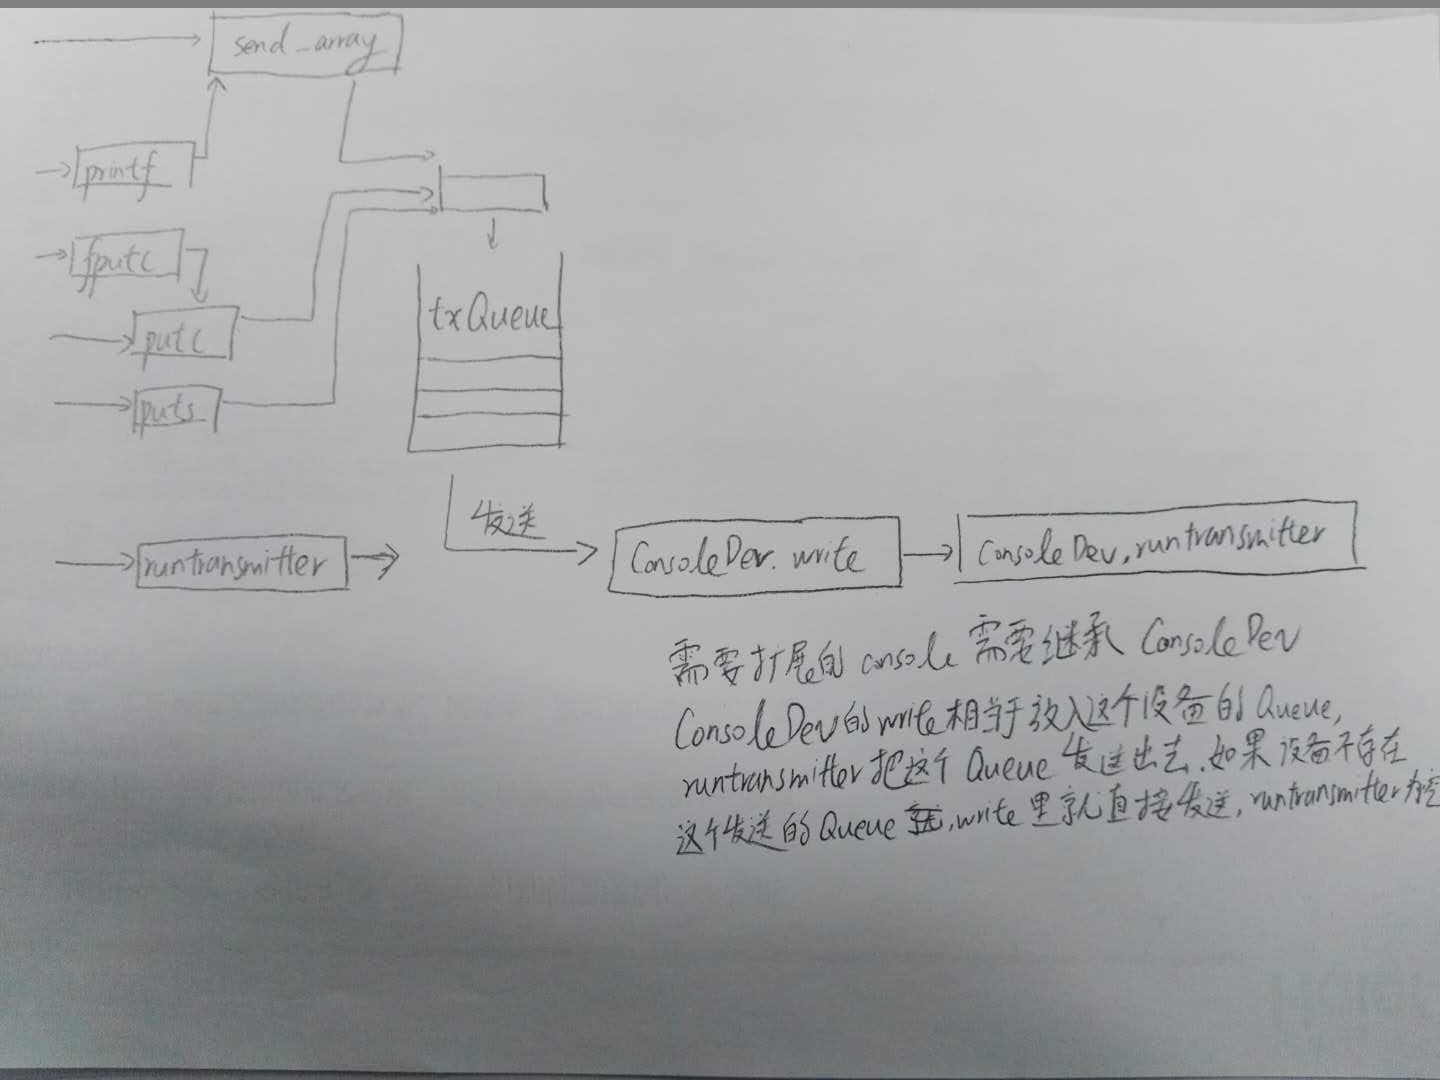 send_array
printf
fputc
putc
puts
txQueue
发送
runtransmitter
ConsoleDev.write
ConsoleDev.runtransmitter
需要扩展的console需要继承ConsoleDev
ConsoleDev的write相当于放入这个设备的Queue,
runtransmitter把这个Queue发送出去.如果设备不存在
这个发送的Queue,write里就直接发送,runtransmitter为空